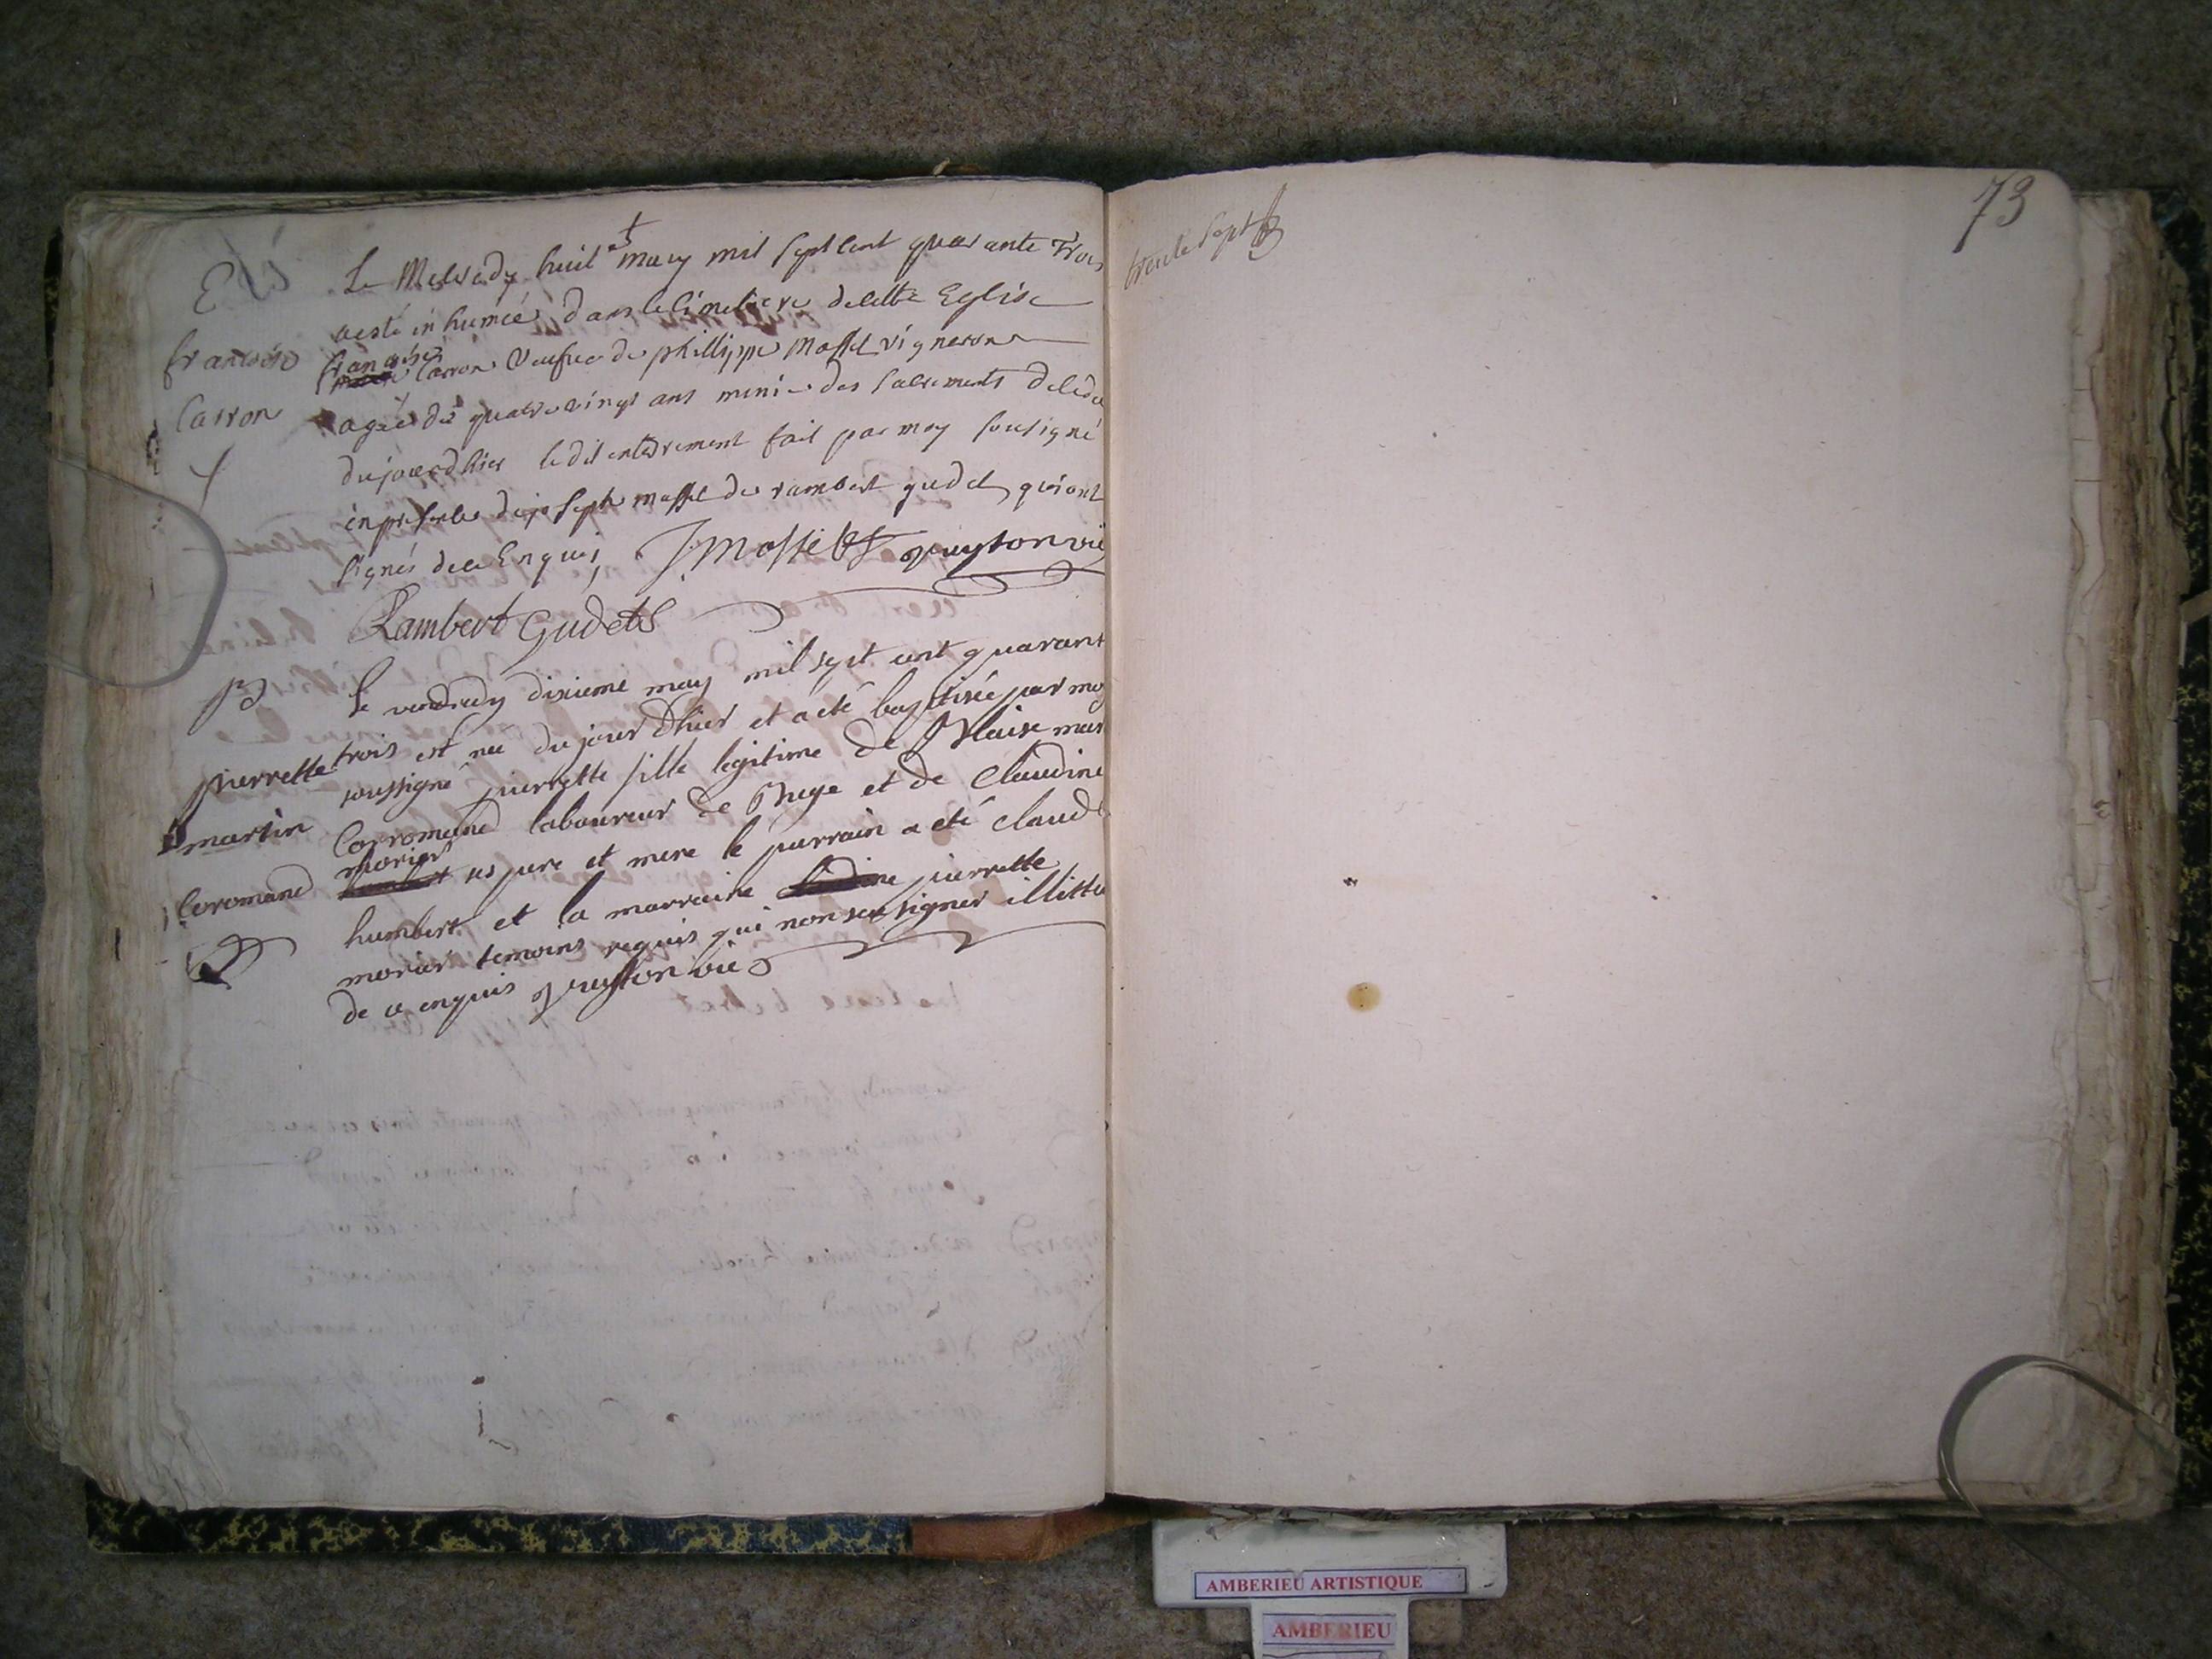 E
françoise
Carron
Le Mecredy huit may mil sept cent quarante Trois
a esté inhumée dans le cimetiere de cette Eglise
françoise Carron Veufve de phillippe Mosset vigneron
agée de quatre vingt ans munie des sacrements
du jour d'hier le dit enterrement fait par moy sousigné
en presence de joseph mosset de rambert gudet qui ont
signés de ce Enquis J. Mossets guyton vic
Rambert Gudet
B
pierrette
martin
Coromand
le vendredy dixieme may mil sept cent quarant
trois est nee du jour d'hier et a eté baptisée par moy
soussigné pierrette fille legitime de Blaise mar
Corromand laboureur de et de Claudine
morier ses pere et mere le parrain a eté claude
humbert et la marraine pierrette
morier temoins requis qui non sçu signer illitte
de ce enquis guyton vic
trente sept
73
AMBERIEU ARTISTIQUE
AMBERIEU